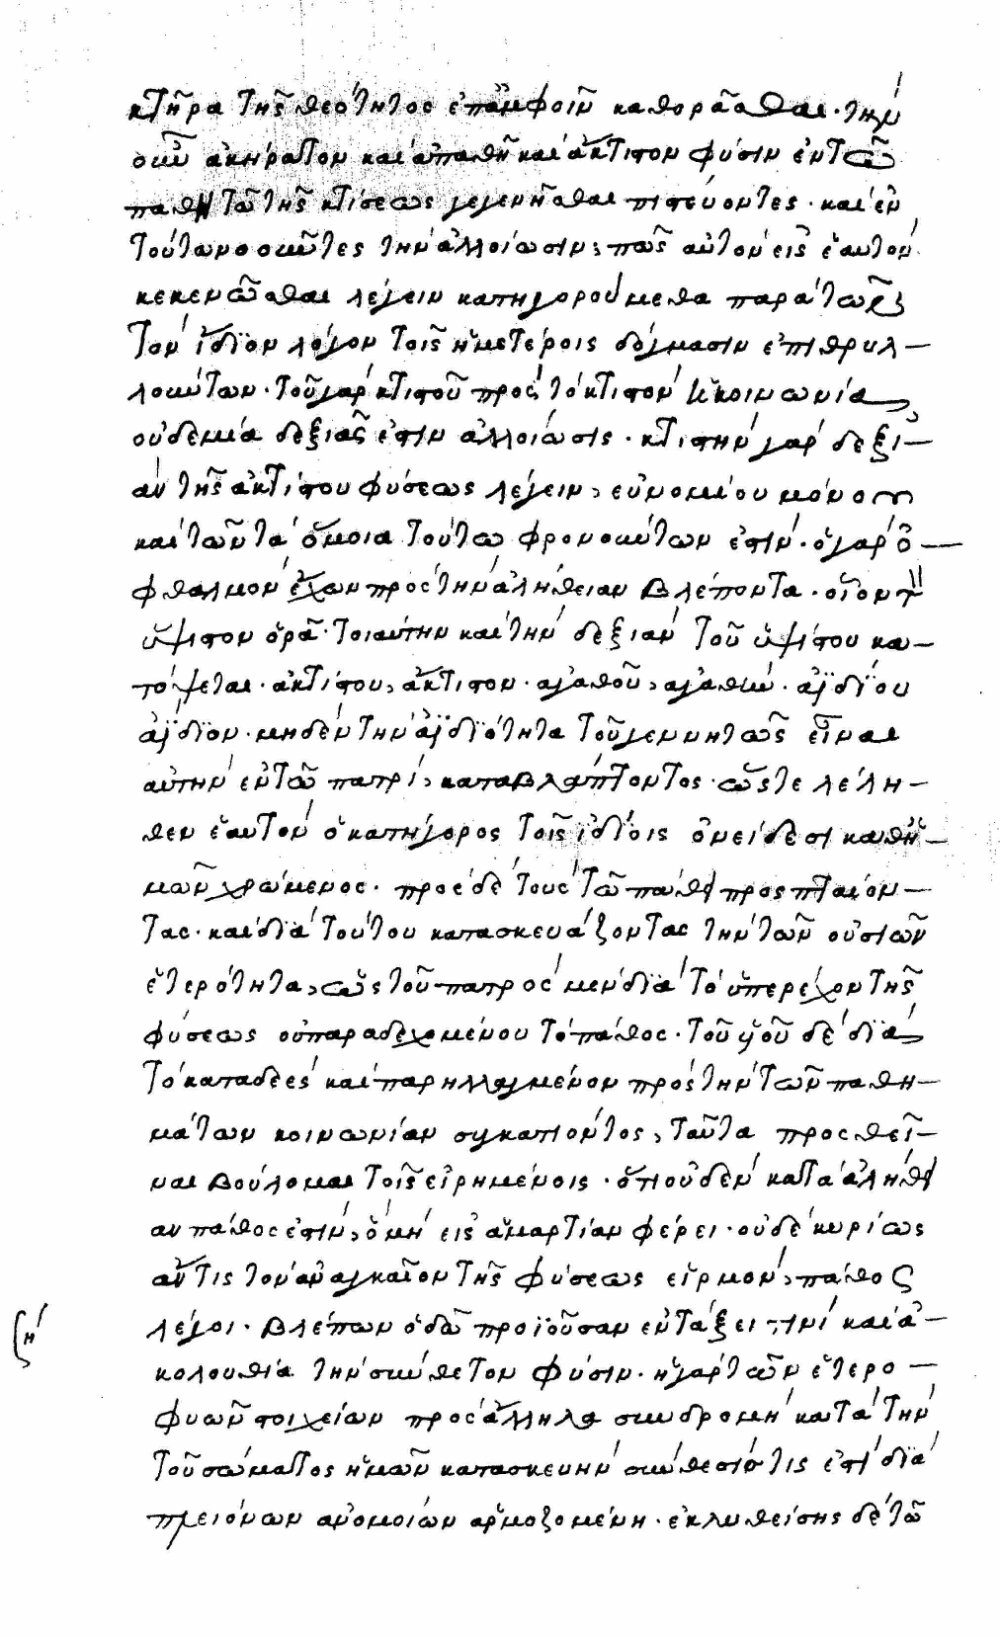 κτῆρα τῆς θεότητος ἐπ' ἀμφοῖν καθορᾶσθαι· τὴν
οὖν ἀκήρατον καὶ ἀπαθῆ καὶ ἄκτιστον φύσιν ἐν τῶ
παθητῶ τῆς κτίσεως γεγενῆσθαι πιστεύοντες· καὶ ἐν
τούτω νοοῦντες τὴν ἀλλοίωσιν, πῶς αὐτὸν εἰς ἑαυτὸν
κεκενῶσθαι λέγειν κατηγορούμεθα παρὰ τῶν
τὸν ἴδιον λόγον τοῖς ἡμετέροις δόγμασιν ἐπιθρυλ-
λούντων· τοῦ γὰρ κτιστοῦ πρὸς τὸ κτιστὸν ἡ κοινωνία
οὐδεμία δεξιᾶς ἐστιν ἀλλοίωσις· κτιστὴν γὰρ δεξι-
ὰν τῆς ἀκτίστου φύσεως λέγειν, εὐνομίου μόνου
καὶ τῶν τὰ ὅμοια τούτω φρονούντων ἐστίν· ὁ γὰρ ὀ-
φθαλμὸν ἔχων πρὸς τὴν ἀλήθειαν βλέποντα· οἷον τὸν
ὕψιστον ὁρᾶ· τοιαύτην καὶ τὴν δεξιὰν τοῦ ὑψίστου κα-
τόψεται· ἀκτίστου, ἄκτιστον· ἀγαθοῦ, ἀγαθήν· ἀϊδίου
ἀΐδιον· μηδὲν τὴν ἀϊδιότητα τοῦ γεννητῶς εἶναι
αὐτὴν ἐν τῶ πατρὶ, καταβλάπτοντος· ὥστε λέλη-
θεν ἑαυτὸν ὁ κατήγορος τοῖς ἰδίοις ὀνείδεσι καθ' ἡ-
μῶν χρώμενος· πρὸς δὲ τοὺς τῶ πάθει προσπταίον-
τας· καὶ διὰ τούτου κατασκευάζοντας τὴν τῶν οὐσιῶν
ἑτερότητα, ὡς τοῦ πατρὸς μὲν διὰ τὸ ὑπερέχον τῆς
φύσεως οὐ παραδεχομένου τὸ πάθος· τοῦ υἱοῦ δὲ διὰ
τὸ καταδεὲς καὶ παρηλλαγμένον πρὸς τὴν τῶν παθη-
μάτων κοινωνίαν συγκατιόντος, ταῦτα προσθεῖ-
ναι βούλομαι τοῖς εἰρημένοις· ὅτι οὐδὲν κατὰ ἀλήθει
αν πάθος ἐστὶν, ὃ μὴ εἰς ἁμαρτίαν φέρει· οὐδὲ κυρίως
ἄν τις τὸν ἀναγκαῖον τῆς φύσεως εἱρμὸν, πάθος
λέγοι· βλέπων ὁδῶ προϊοῦσαν ἐν τάξει τινὶ καὶ ἀ-
κολουθία τὴν σύνθετον φύσιν· ἡ γὰρ τῶν ἑτερο-
φυῶν στοιχείων πρὸς ἄλληλα συνδρομὴ κατὰ τὴν
τοῦ σώματος ἡμῶν κατασκευὴν σύνθεσίς τις ἐστὶ διὰ
πλειόνων ἀνομοίων ἁρμοζομένη· ἐκλυθείσης δὲ τῶ